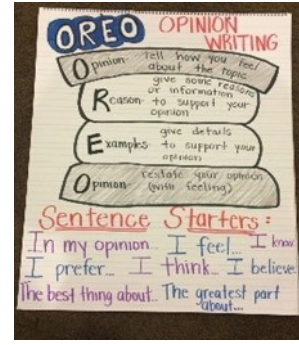 OREO OPINION
WRITING
Opinion- Tell how you feel
about the topic
Reason- give some reasons
or information
to support your
opinion
Examples- give details
to support your
opinion
Opinion- restate your opinion
(with feeling)
Sentence Starters:
In my opinion... I feel... I know
I prefer... I think... I believe
The best thing about... The greatest part
about...